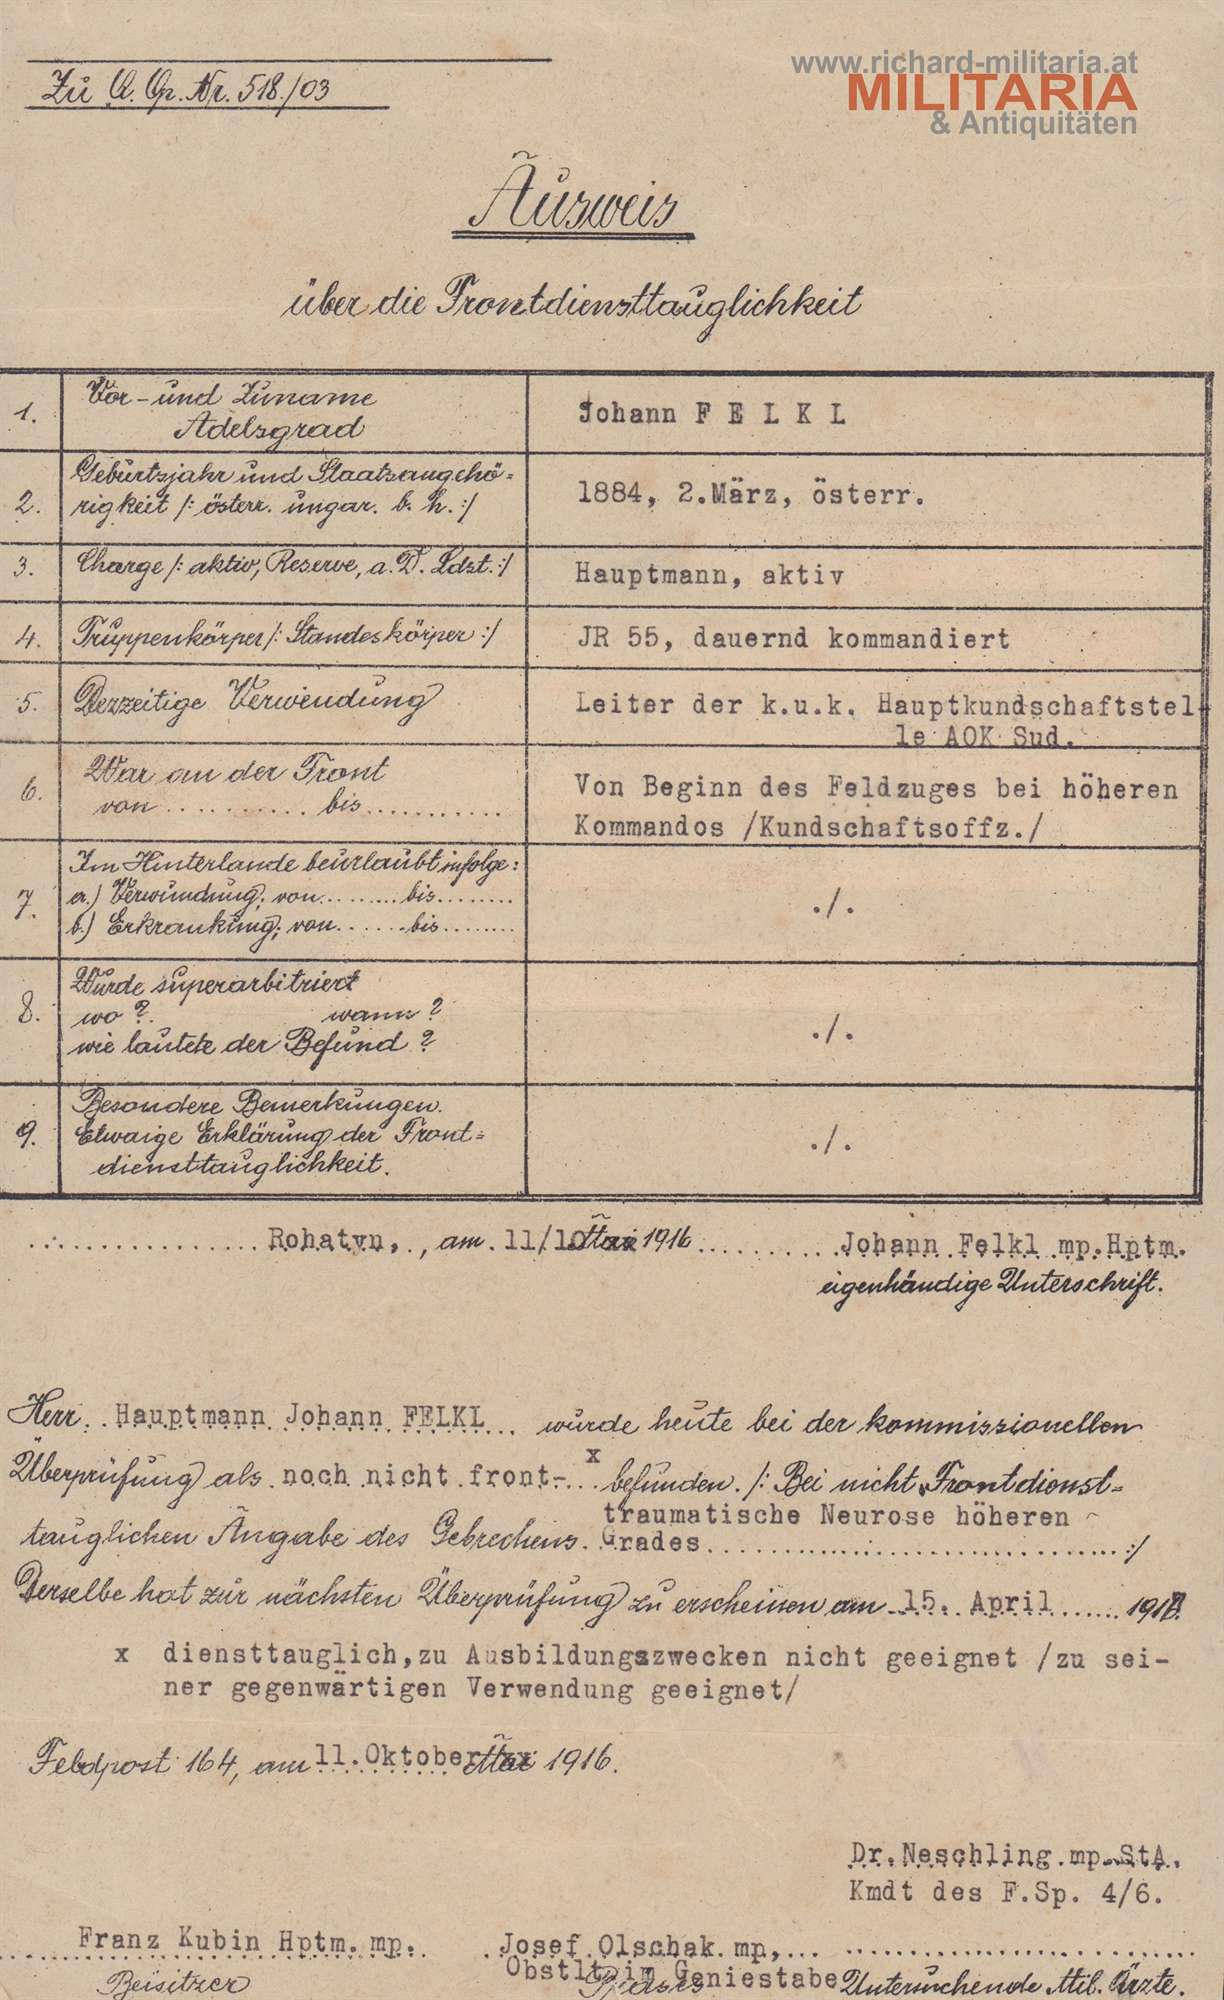 www.richard-militaria.at
MILITARIA
& Antiquitäten
Zu A. Op. Nr. 518./03
Ausweis
über die Frontdiensttauglichkeit
1. Vor- und Zuname
Adelsgrad
Johann F E L K L
2. Geburtsjahr und Staatsangehö=
rigkeit /: österr. ungar. b. h. :/
1884, 2.März, österr.
3. Charge /: aktiv, Reserve, a. D. Ldst. :/
Hauptmann, aktiv
4. Truppenkörper /: Standeskörper :/
JR 55, dauernd kommandiert
5. Derzeitige Verwendung
Leiter der k.u.k. Hauptkundschaftstel-
le AOK Sud.
6. War an der Front
von .......... bis ..........
Von Beginn des Feldzuges bei höheren
Kommandos /Kundschaftsoffz./
7. Im Hinterlande beurlaubt infolge:
a.) Verwundung; von ......... bis ........
b.) Erkrankung; von ....... bis ........
./.
8. Wurde superarbitriert
wo ? wann ?
wie lautete der Befund ?
./.
9. Besondere Bemerkungen.
Etwaige Erklärung der Front=
diensttauglichkeit.
./.
Rohatyn, am 11/10 Mai 1916 Johann Felkl mp.Hptm.
eigenhändige Unterschrift.
Herr Hauptmann Johann FELKL wurde heute bei der kommissionellen
Überprüfung als noch nicht front- x befunden. /: Bei nicht Frontdienst=
tauglichen Angabe des Gebrechens. traumatische Neurose höheren
Grades :/
Derselbe hat zur nächsten Überprüfung zu erscheinen am 15. April 1917.
x diensttauglich,zu Ausbildungszwecken nicht geeignet /zu sei-
ner gegenwärtigen Verwendung geeignet/
Feldpost 164, am 11.Oktober Mai 1916.
Dr.Neschling mp.StA.
Kmdt des F.Sp. 4/6.
Franz Kubin Hptm. mp. Josef Olschak mp,
Obstlt im Geniestabe
Beisitzer Präses Untersuchende Mil. Ärzte.